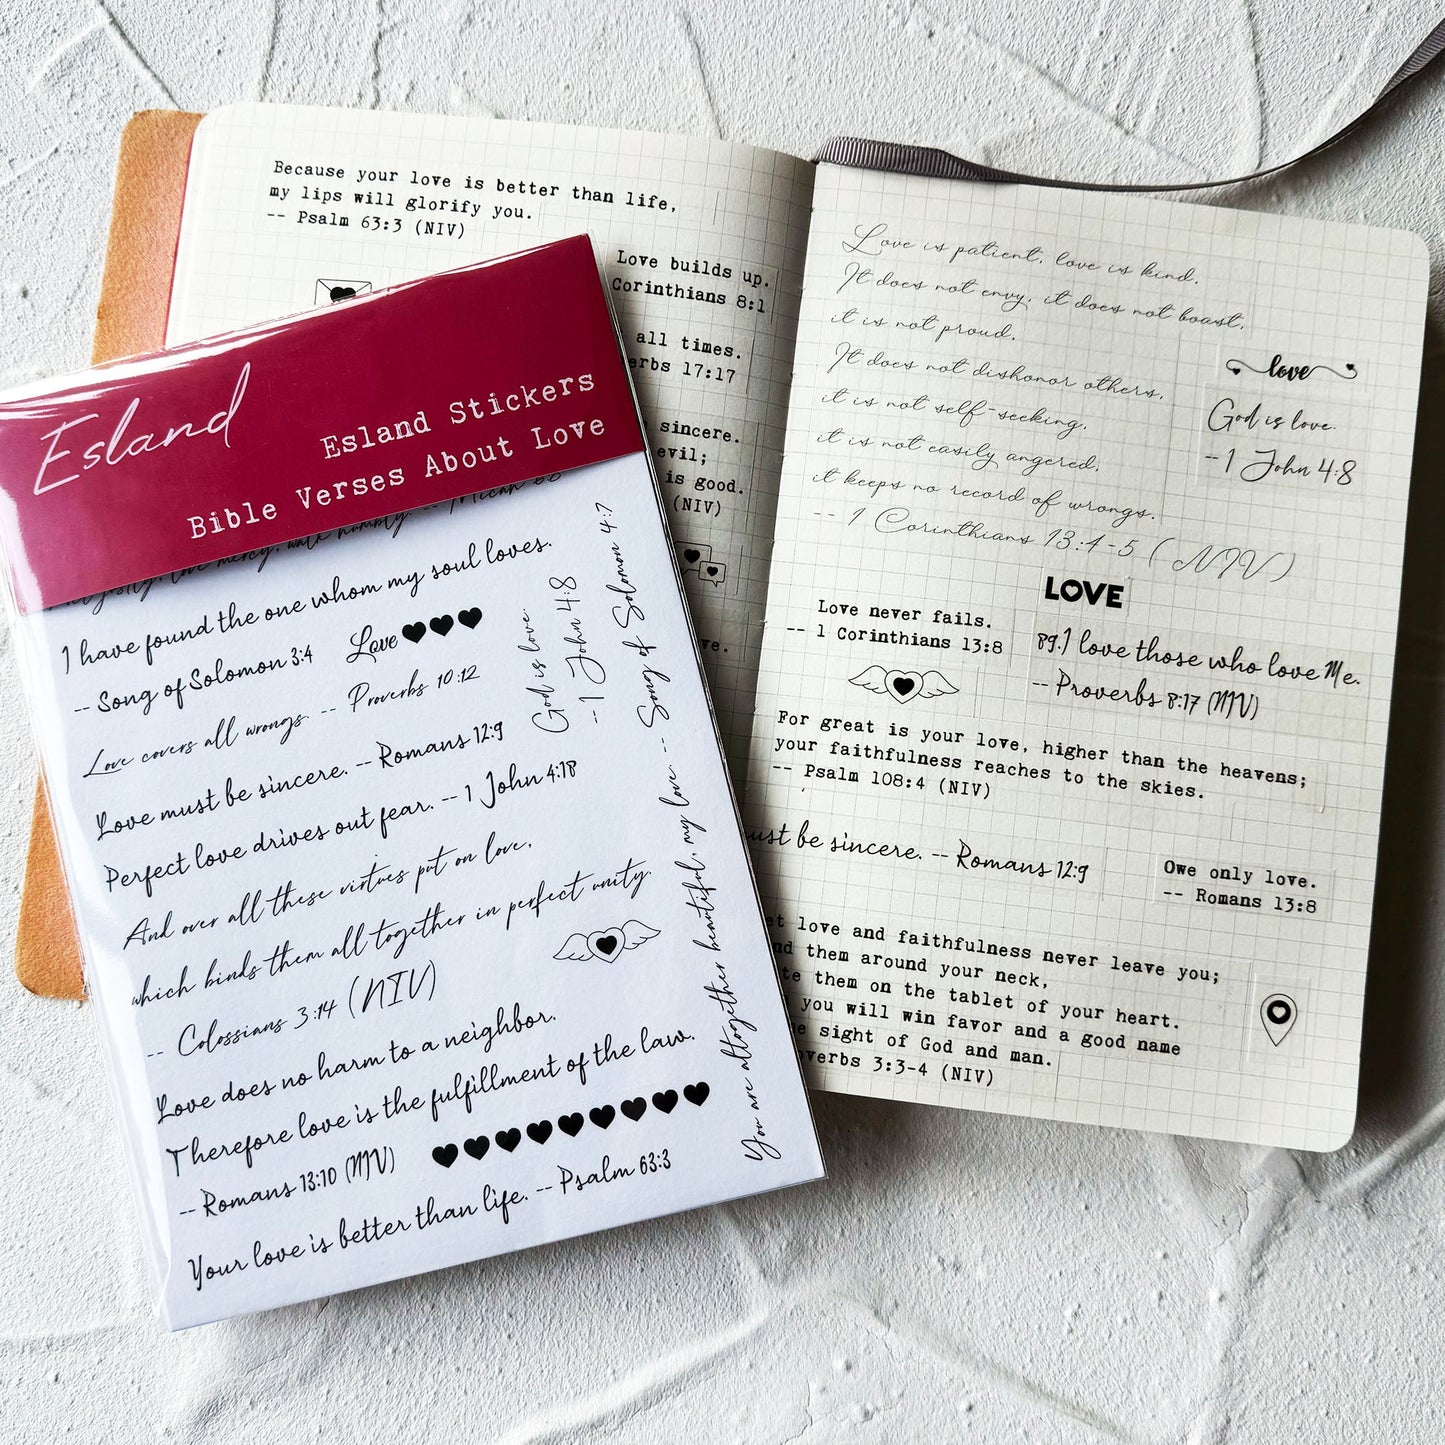 Because your love is better than life,
my lips will glorify you.
-- Psalm 63:3 (NIV)
Love builds up.
Corinthians 8:1
all times.
17:17
sincere.
evil;
is good.
(NIV)
Esland
Esland Stickers
Bible Verses About Love
love mercy, humbly. -- Micah 6:8
I have found the one whom my soul loves.
-- Song of Solomon 3:4
Love
Love covers all wrongs. -- Proverbs 10:12
Love must be sincere. -- Romans 12:9
Perfect love drives out fear. -- 1 John 4:18
And over all these virtues put on love,
which binds them all together in perfect unity.
-- Colossians 3:14 (NIV)
Love does no harm to a neighbor.
Therefore love is the fulfillment of the law.
-- Romans 13:10 (NIV)
Your love is better than life. -- Psalm 63:3
God is love.
--1 John 4:8
You are altogether beautiful, my love. -- Song of Solomon 4:7
Love is patient, love is kind.
It does not envy, it does not boast,
it is not proud.
It does not dishonor others,
it is not self-seeking,
it is not easily angered,
it keeps no record of wrongs.
-- 1 Corinthians 13:4-5 (NIV)
love
God is love.
--1 John 4:8
LOVE
Love never fails.
-- 1 Corinthians 13:8
89.I love those who love Me.
-- Proverbs 8:17 (NIV)
For great is your love, higher than the heavens;
your faithfulness reaches to the skies.
-- Psalm 108:4 (NIV)
be sincere. -- Romans 12:9
Owe only love.
-- Romans 13:8
love and faithfulness never leave you;
them around your neck,
them on the tablet of your heart.
you will win favor and a good name
sight of God and man.
3:3-4 (NIV)